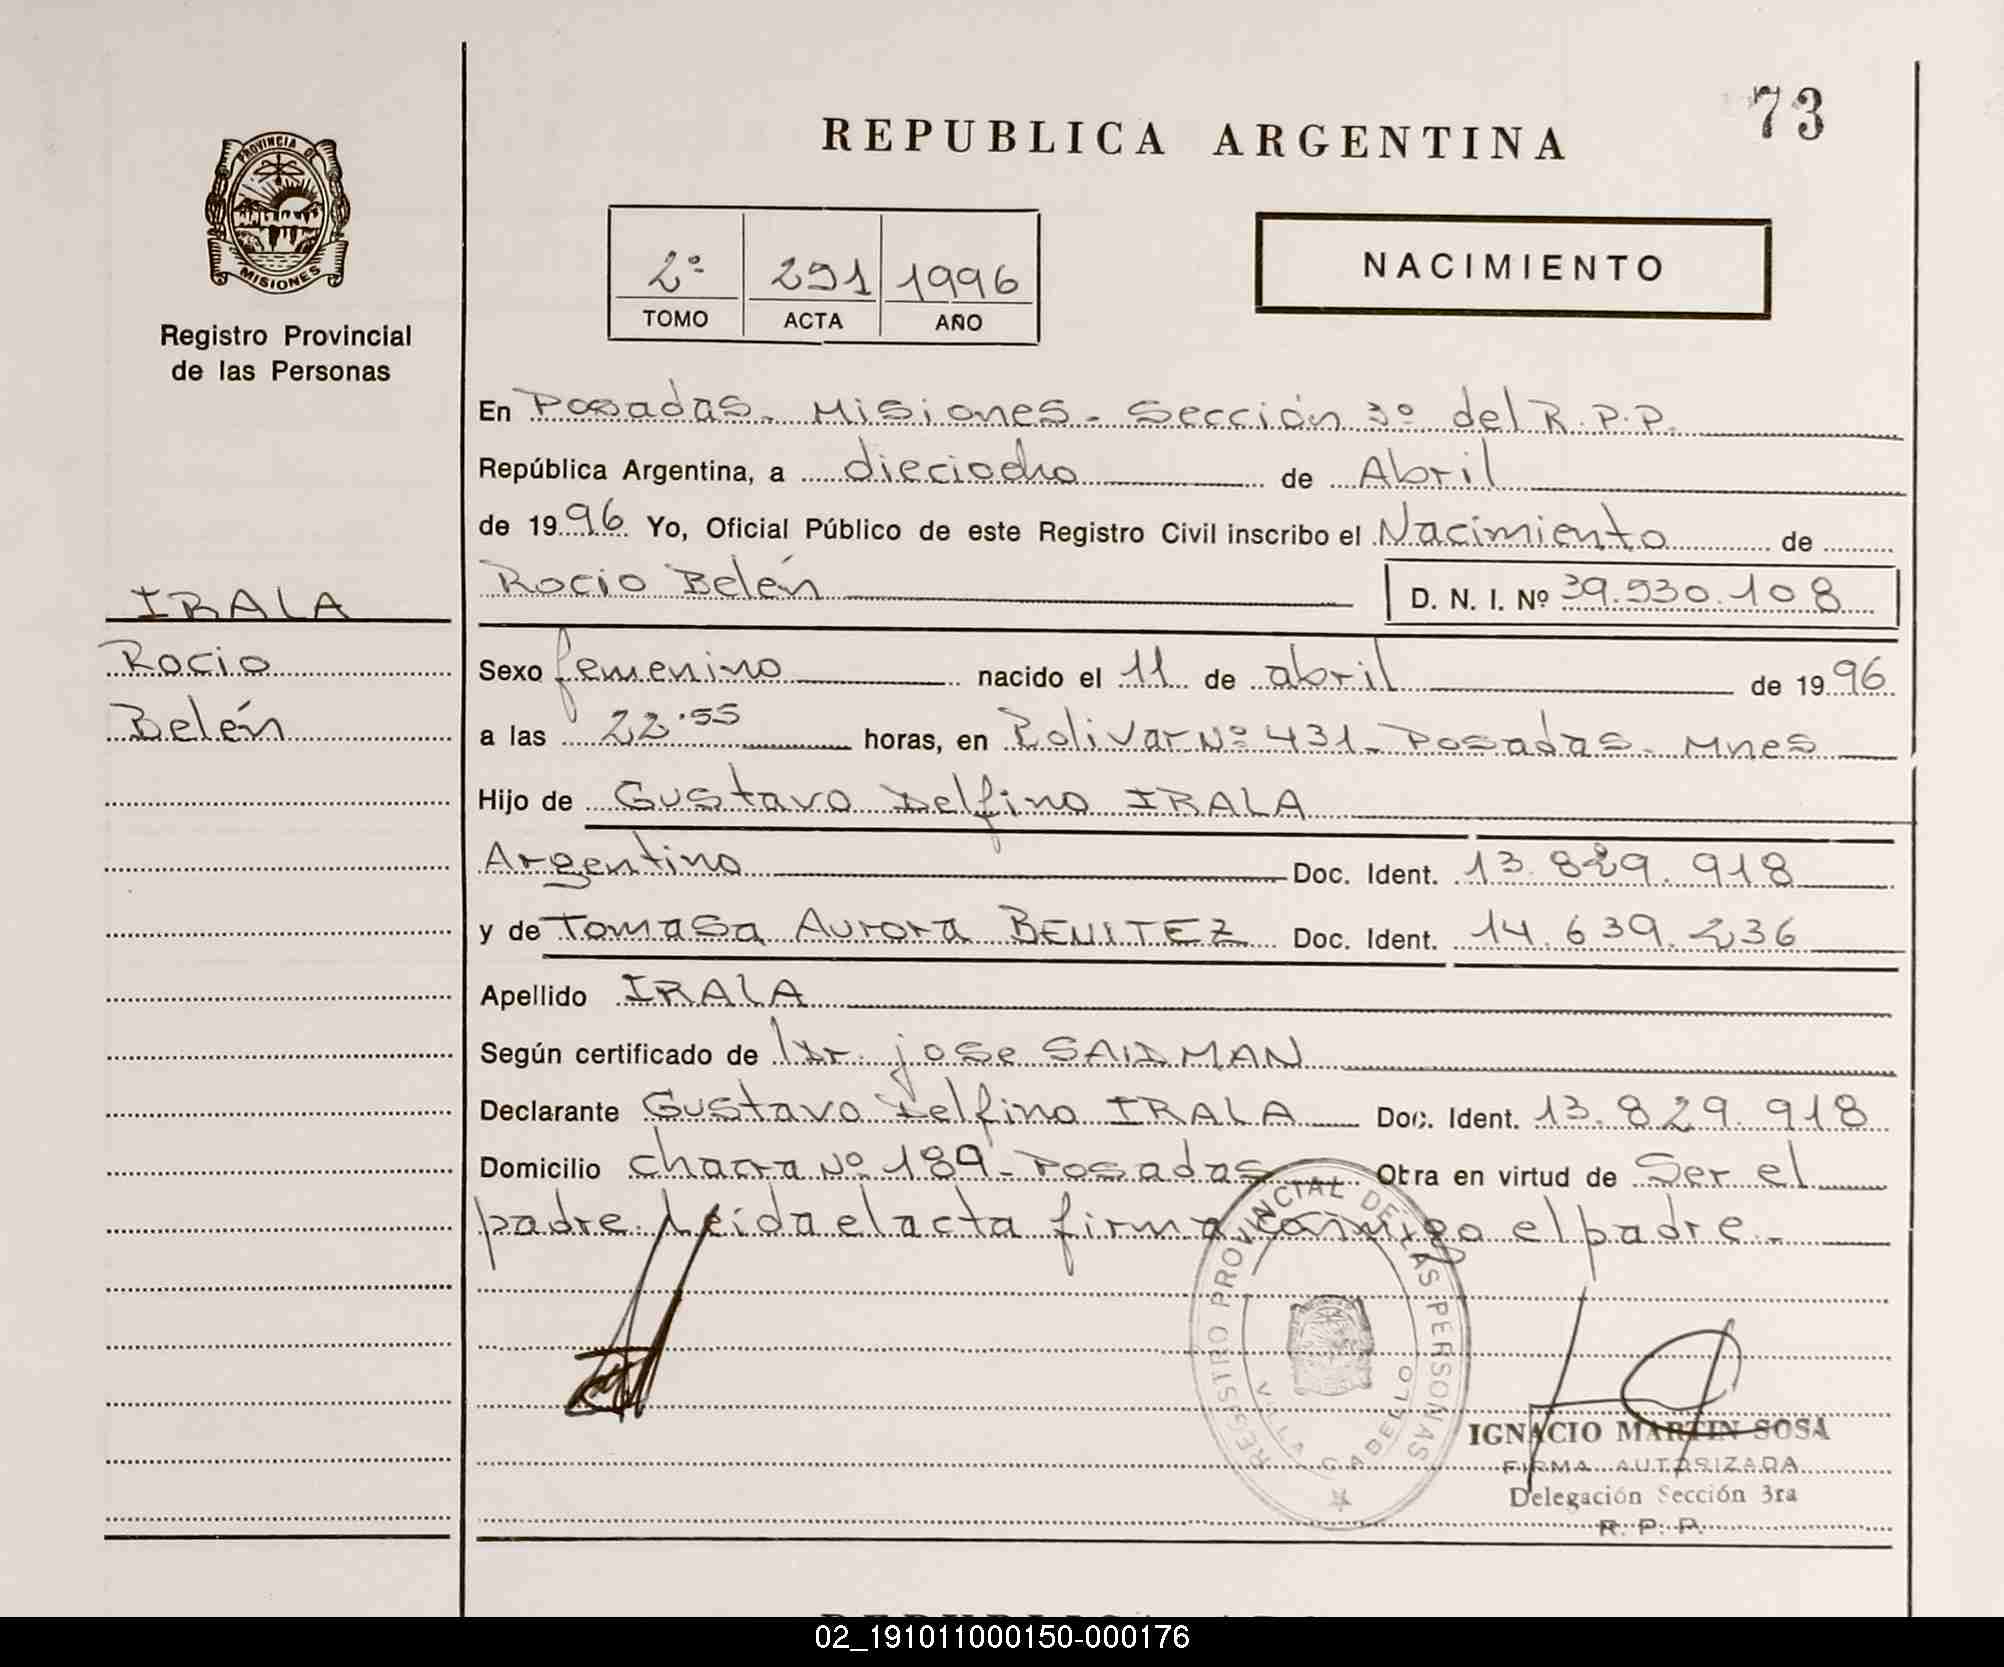 73
REPUBLICA ARGENTINA
PROVINCIA DE
MISIONES
Registro Provincial
de las Personas
2º 291 1996
TOMO ACTA AÑO
NACIMIENTO
En Posadas - Misiones - Sección 3º del R.P.P.
República Argentina, a dieciocho de Abril
de 1996 Yo, Oficial Público de este Registro Civil inscribo el Nacimiento de
Rocio Belén D. N. I. Nº 39.530.108
IRALA
Rocio
Belén
Sexo femenino nacido el 11 de abril de 1996
a las 22.55 horas, en Bolivar Nº 431 - Posadas - Mnes
Hijo de Gustavo Delfino IRALA
Argentino Doc. Ident. 13.829.918
y de Tomasa Aurora BENITEZ Doc. Ident. 14.639.236
Apellido IRALA
Según certificado de Dr. jose SAIDMAN
Declarante Gustavo Delfino IRALA Doc. Ident. 13.829.918
Domicilio chacra Nº 189 - Posadas Obra en virtud de Ser el
padre. Leida el acta firma conmigo el padre. -
REGISTRO PROVINCIAL DE LAS PERSONAS
VILLA CABELLO
IGNACIO MARTIN SOSA
FIRMA AUTORIZADA
Delegación Sección 3ra
R. P. P.
02_191011000150-000176